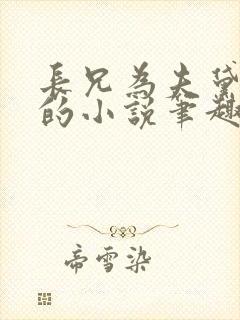 長兄為夫黛
的小說筆趣
帝雪染